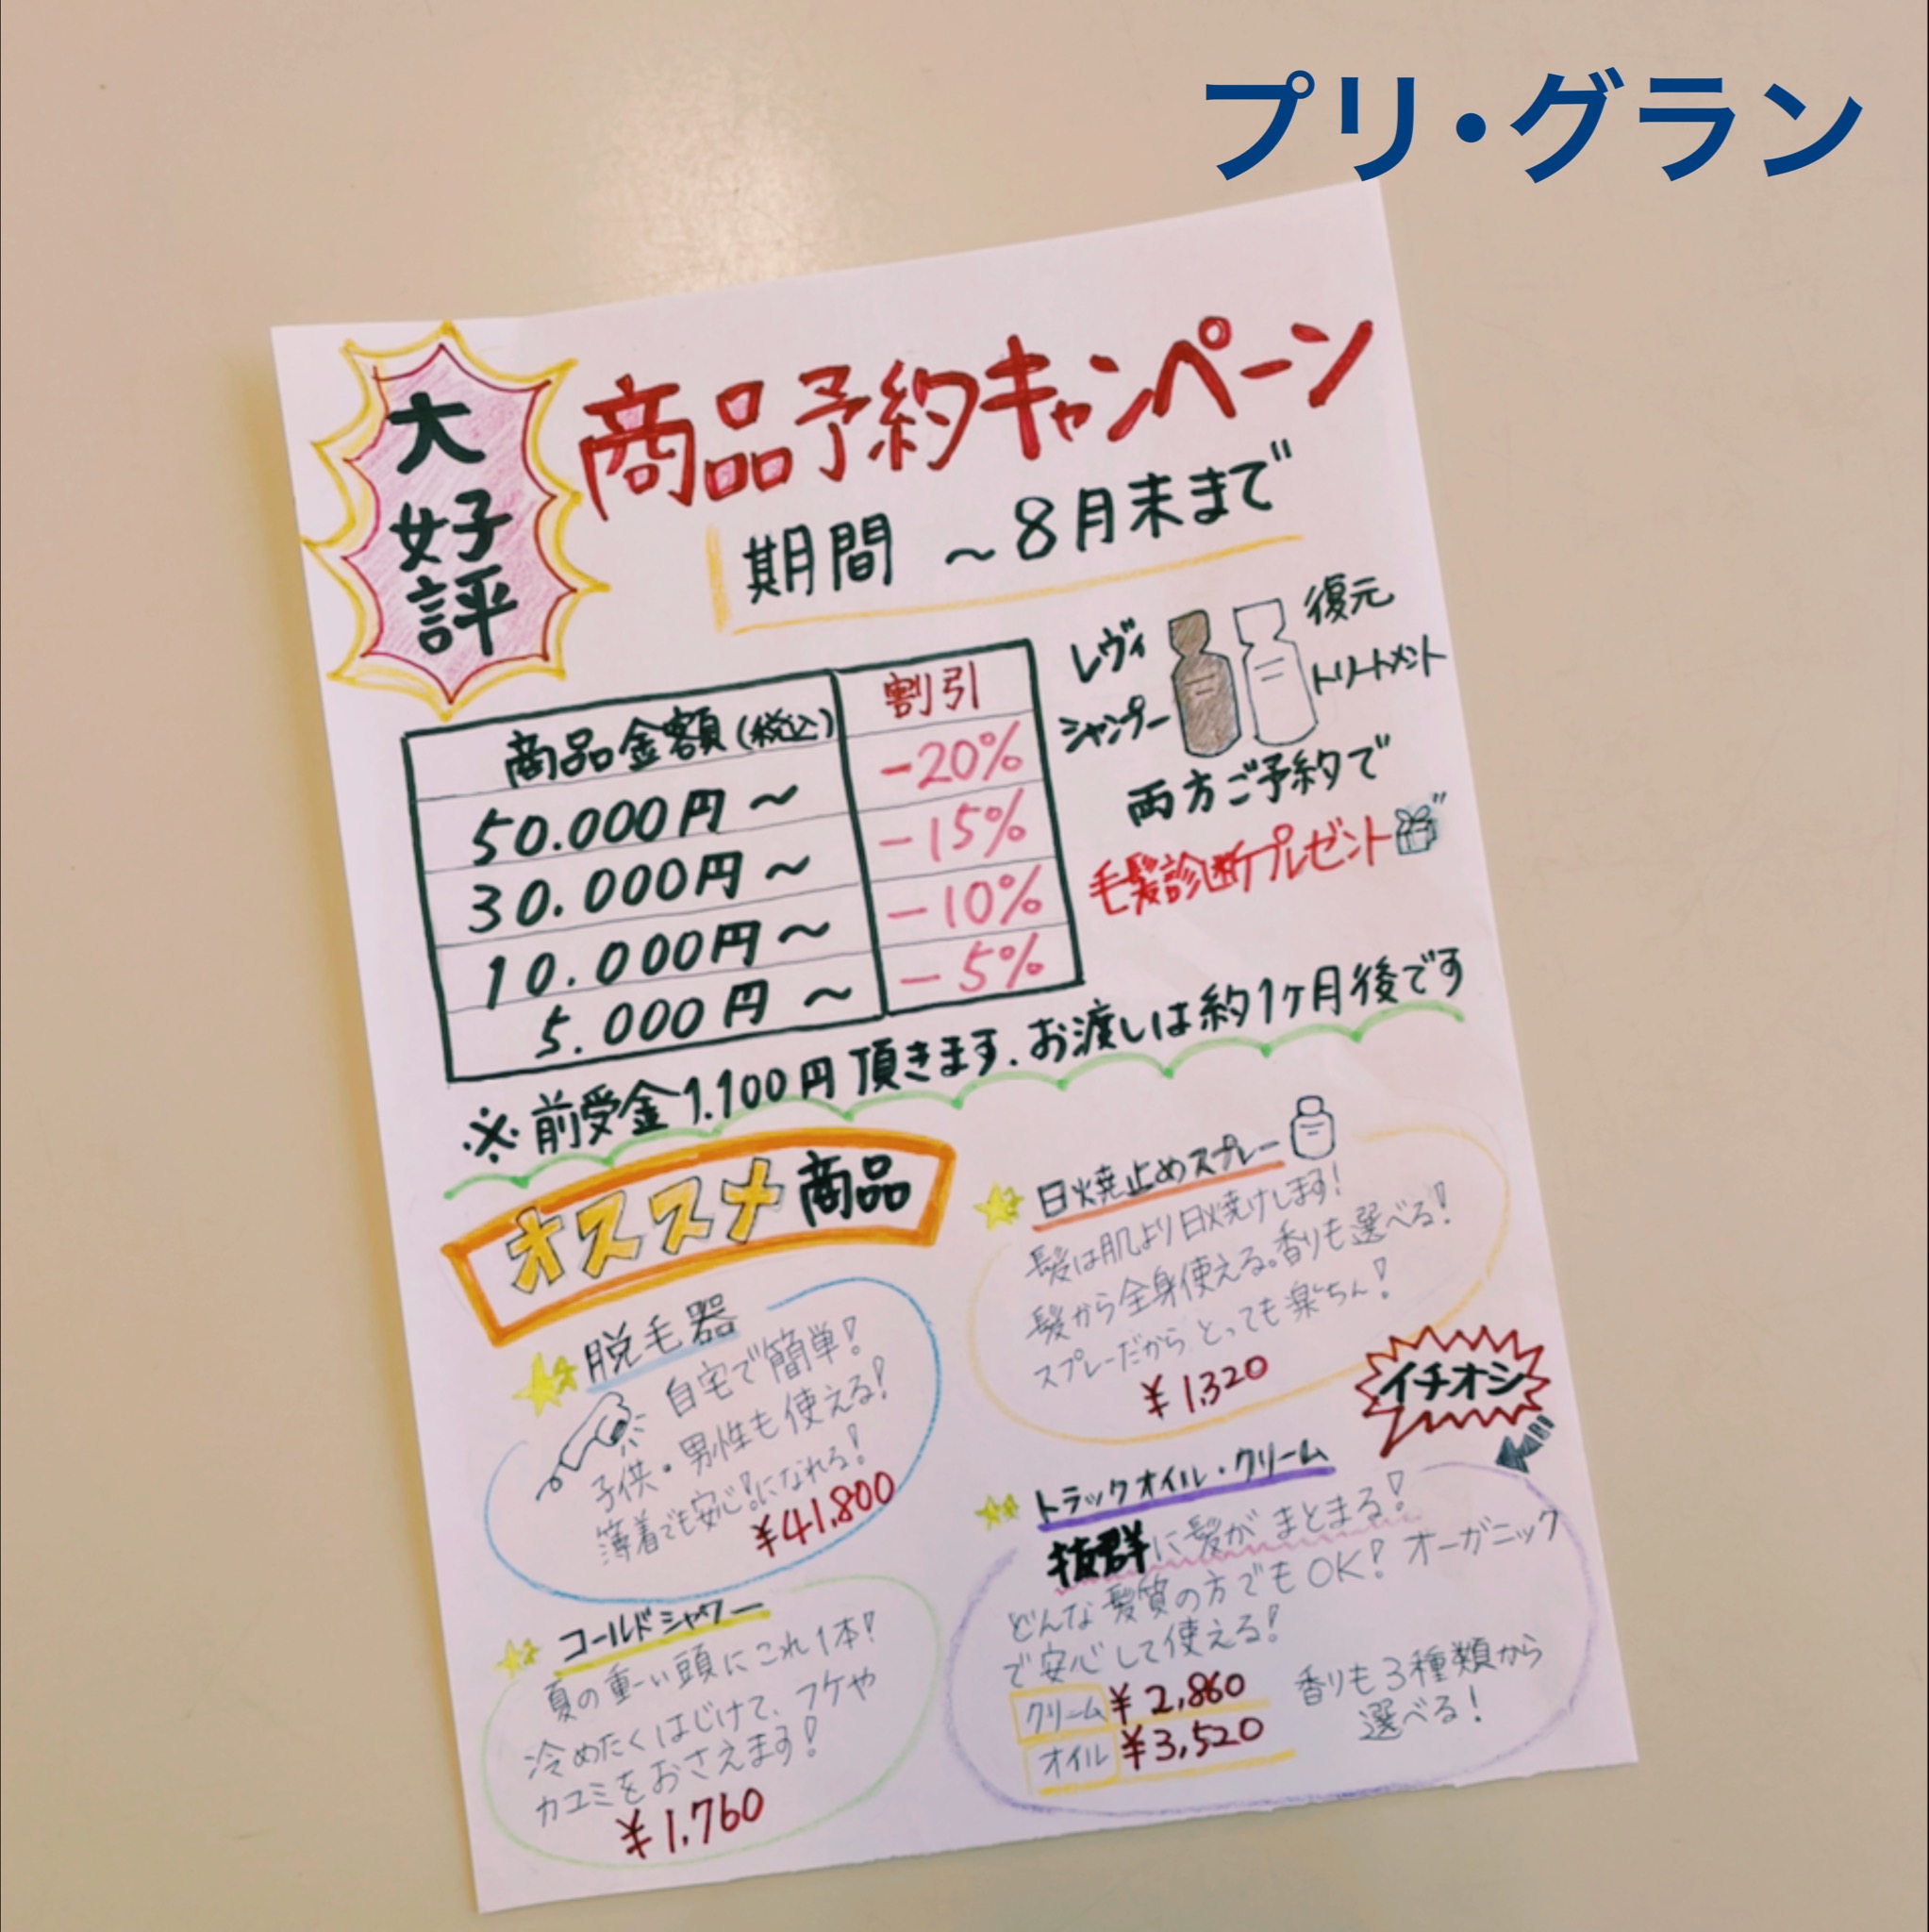 プリ・グラン
大好評
商品予約キャンペーン
期間 ～8月末まで
商品金額(税込) 割引
50.000円～ -20%
30.000円～ -15%
10.000円～ -10%
5.000円～ -5%
レヴィ
シャンプー
復元
トリートメント
両方ご予約で
毛髪診断プレゼント
※前受金1.100円頂きます.お渡しは約1ヶ月後です
オススメ商品
脱毛器
自宅で簡単!
子供・男性も使える!
薄着でも安心!になれる!
¥41,800
日焼止めスプレー
髪は肌より日焼けします!
髪から全身使える。香りも選べる!
スプレーだからとっても楽ちん!
¥1,320
イチオシ
コールドシャワー
夏の重ーい頭にこれ1本!
冷めたくはじけて、フケや
カユミをおさえます!
¥1,760
トラックオイル・クリーム
抜群に髪がまとまる!
どんな髪質の方でもOK! オーガニック
で安心して使える!
クリーム ¥2,860
オイル ¥3,520
香りも3種類から
選べる!